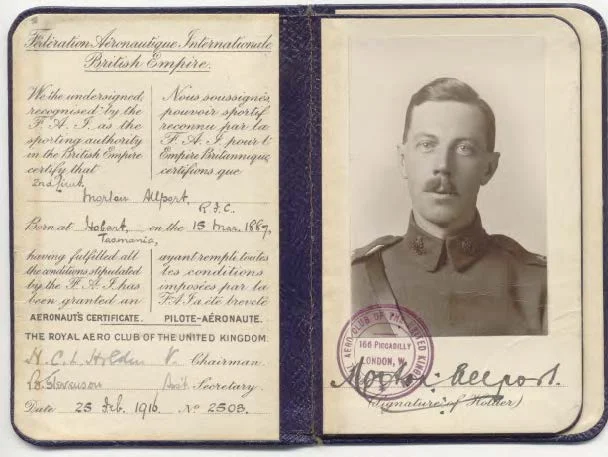 Fédération Aéronautique Internationale
British Empire.
We the undersigned
recognised by the
F. A. I. as the
sporting authority
in the British Empire
certify that
Nous soussignés
pouvoir sportif
reconnu par la
F. A. I. pour l'
Empire Britannique
certifions que
2nd Lieut.
Morton Allport,
R.F.C.
Born at Hobart, on the 15 Mar. 1887,
Tasmania,
having fulfilled all
the conditions stipulated
by the F. A. I. has
been granted an
AERONAUT'S CERTIFICATE.
ayant rempli toutes
les conditions
imposées par la
F.A.I. a été breveté
PILOTE-AÉRONAUTE.
THE ROYAL AERO CLUB OF THE UNITED KINGDOM.
H. C. L. Holden V. Chairman.
B. Stevenson Asst. Secretary.
Date 25 Feb. 1916. Nº 2503.
AERO CLUB OF THE UNITED KINGDOM
166 PICCADILLY
LONDON, W.
Morton Allport.
(Signature of Holder)